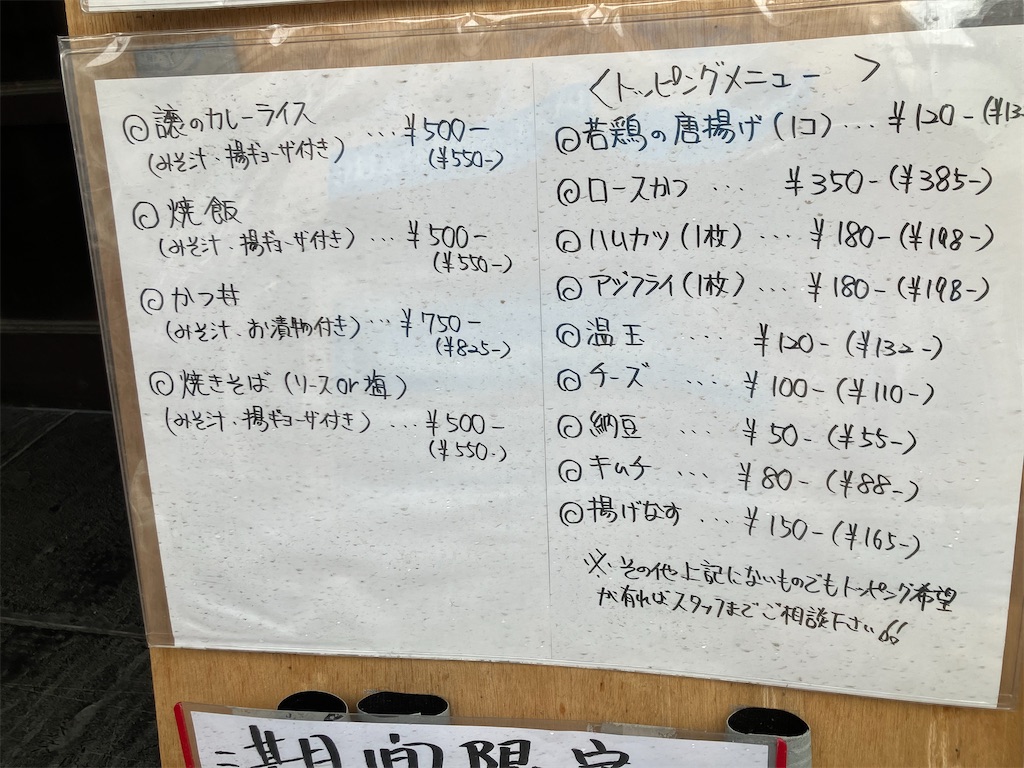 ◎譲のカレーライス …¥500-
(みそ汁・揚ギョーザ付き) (¥550-)
◎焼飯
(みそ汁・揚ギョーザ付き) …¥500-
(¥550-)
◎かつ丼
(みそ汁、お漬物付き) …¥750-
(¥825-)
◎焼きそば (ソースor塩)
(みそ汁・揚ギョーザ付き) …¥500-
(¥550-)
<トッピングメニュー>
◎若鶏の唐揚げ(1コ)… ¥120-(¥13
◎ロースかつ … ¥350-(¥385-)
◎ハムカツ(1枚)… ¥180-(¥198-)
◎アジフライ(1枚)… ¥180-(¥198-)
◎温玉 ¥120-(¥132-)
◎チーズ … ¥100-(¥110-)
◎納豆 … ¥50-(¥55-)
◎キムチ … ¥80-(¥88-)
◎揚げなす … ¥150-(¥165-)
※その他上記にないものでもトッピング希望
が有ればスタッフまでご相談下さい!!
期間限定